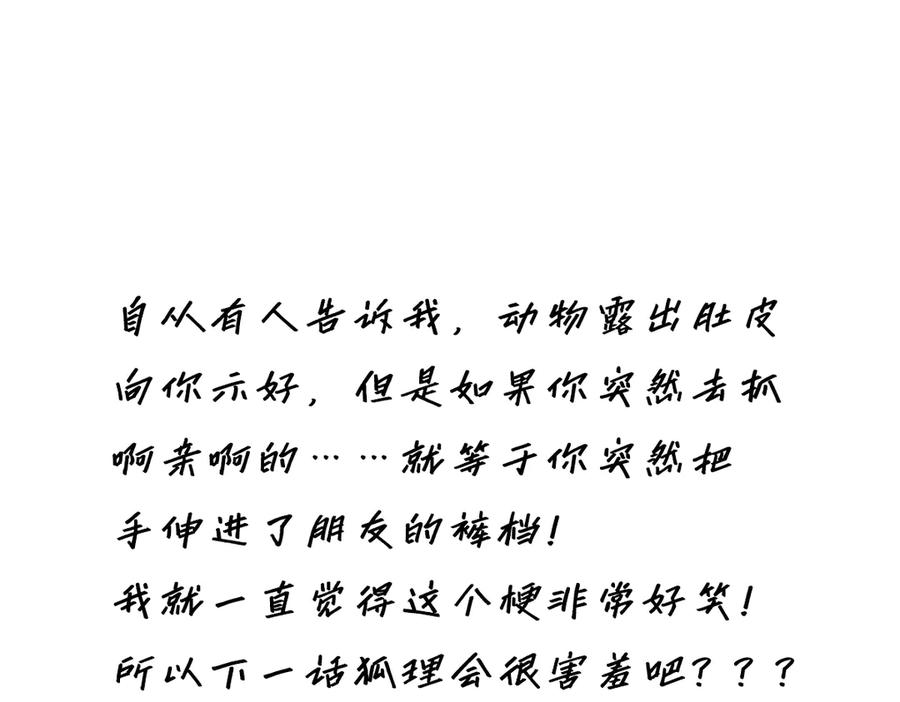 自从有人告诉我，动物露出肚皮
向你示好，但是如果你突然去抓
啊亲啊的……就等于你突然把
手伸进了朋友的裤档！
我就一直觉得这个梗非常好笑！
所以下一话狐理会很害羞吧？？？